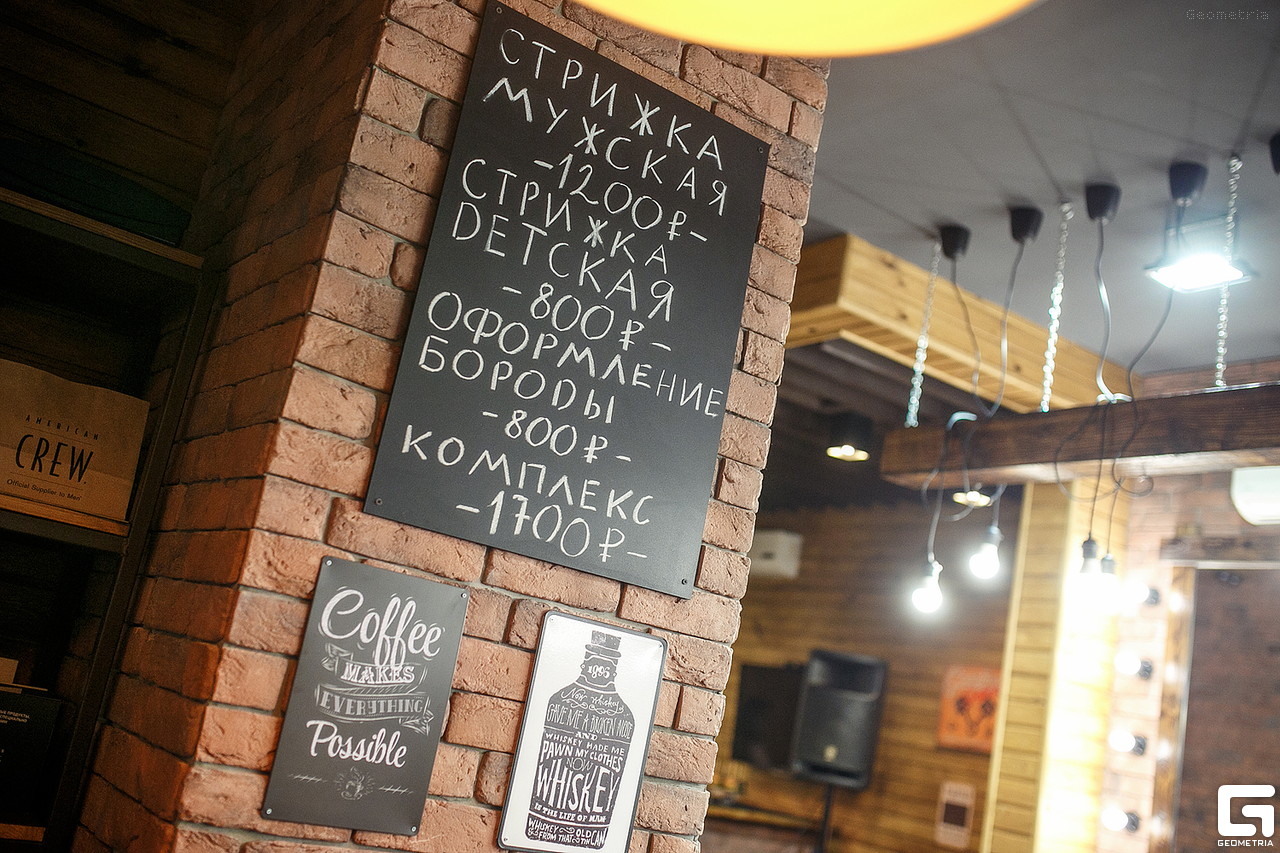 Geometria
СТРИЖКА
МУЖСКАЯ
-1200₽-
СТРИЖКА
DЕТСКАЯ
-800₽-
ОФОРМЛЕНИЕ
БОРОDЫ
-800₽-
КОМПЛЕКС
-1700₽-
AMERICAN
CREW
Official Supplier to Men
Coffee
MAKES
EVERYTHING
Possible
1985
Now whiskey
GAVE ME A BROKEN NOSE
AND
WHISKEY MADE ME
PAWN MY CLOTHES
NOW
WHISKEY
IS THE LIFE OF MAN
WHISKEY
FROM THAT
OLD
CAN
GEOMETRIA